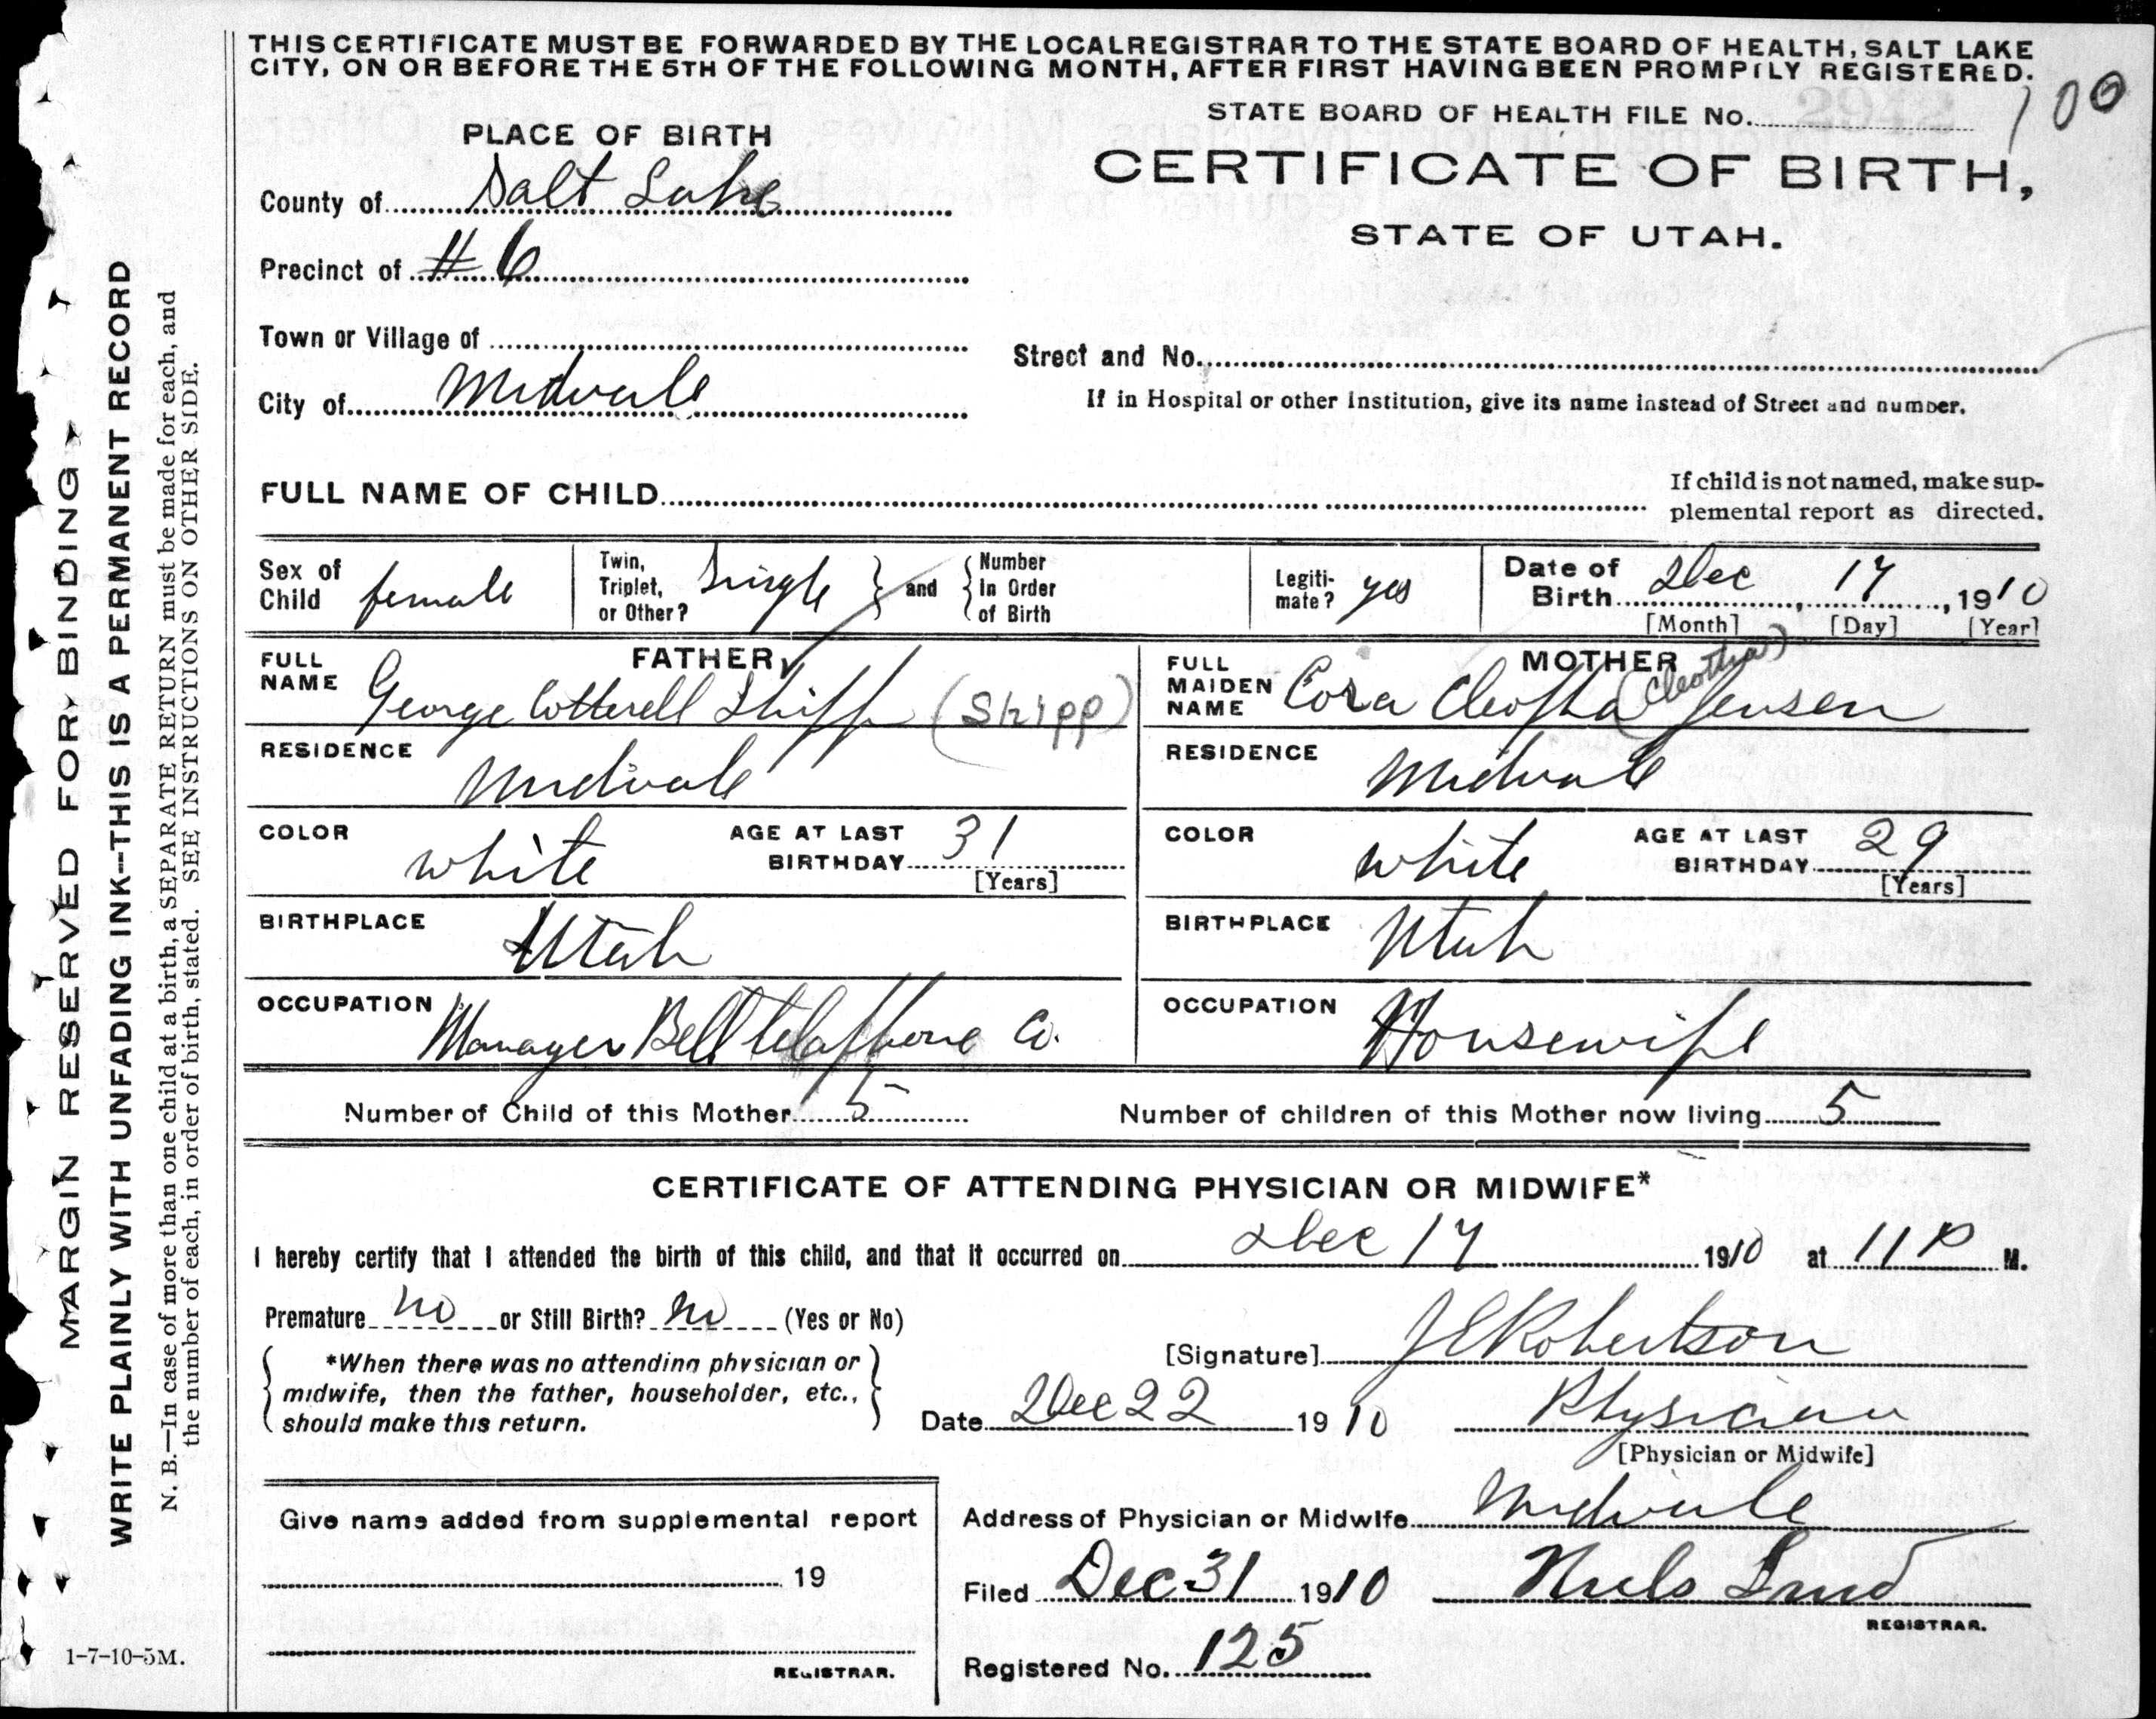 THIS CERTIFICATE MUST BE FORWARDED BY THE LOCAL REGISTRAR TO THE STATE BOARD OF HEALTH, SALT LAKE
CITY, ON OR BEFORE THE 5TH OF THE FOLLOWING MONTH, AFTER FIRST HAVING BEEN PROMPTLY REGISTERED.
STATE BOARD OF HEALTH FILE No. 100
PLACE OF BIRTH
CERTIFICATE OF BIRTH,
STATE OF UTAH.
County of Salt Lake
Precinct of #6
Town or Village of
Street and No.
City of Midvale
If in Hospital or other Institution, give its name instead of Street and number.
FULL NAME OF CHILD
If child is not named, make sup-
plemental report as directed.
Sex of Child female
Twin, Triplet, or Other? Single and Number in Order of Birth
Legiti-mate? yes
Date of Birth Dec 17, 1910
[Month] [Day] [Year]
FATHER
FULL NAME George Cotterell Shipp (Shipp)
RESIDENCE Midvale
COLOR white AGE AT LAST BIRTHDAY 31 [Years]
BIRTHPLACE Utah
OCCUPATION Manager Bell telaphone Co.
MOTHER
FULL MAIDEN NAME Cora Cleofha (Cleotha) Jensen
RESIDENCE Midvale
COLOR white AGE AT LAST BIRTHDAY 29 [Years]
BIRTHPLACE Utah
OCCUPATION Housewife
Number of Child of this Mother 5 Number of children of this Mother now living 5
CERTIFICATE OF ATTENDING PHYSICIAN OR MIDWIFE*
I hereby certify that I attended the birth of this child, and that it occurred on Dec 17 1910 at 11 P M.
Premature no or Still Birth? no (Yes or No)
*When there was no attending physician or
midwife, then the father, householder, etc.,
should make this return.
[Signature] J E Robertson
Date Dec 22 1910 Physician
[Physician or Midwife]
Give name added from supplemental report
19
REGISTRAR.
Address of Physician or Midwife Midvale
Filed Dec 31 1910 Niels Lind
REGISTRAR.
Registered No. 125
MARGIN RESERVED FOR BINDING
WRITE PLAINLY WITH UNFADING INK—THIS IS A PERMANENT RECORD
N. B.—In case of more than one child at a birth, a SEPARATE RETURN must be made for each, and
the number of each, in order of birth, stated. SEE INSTRUCTIONS ON OTHER SIDE.
1-7-10-5M.